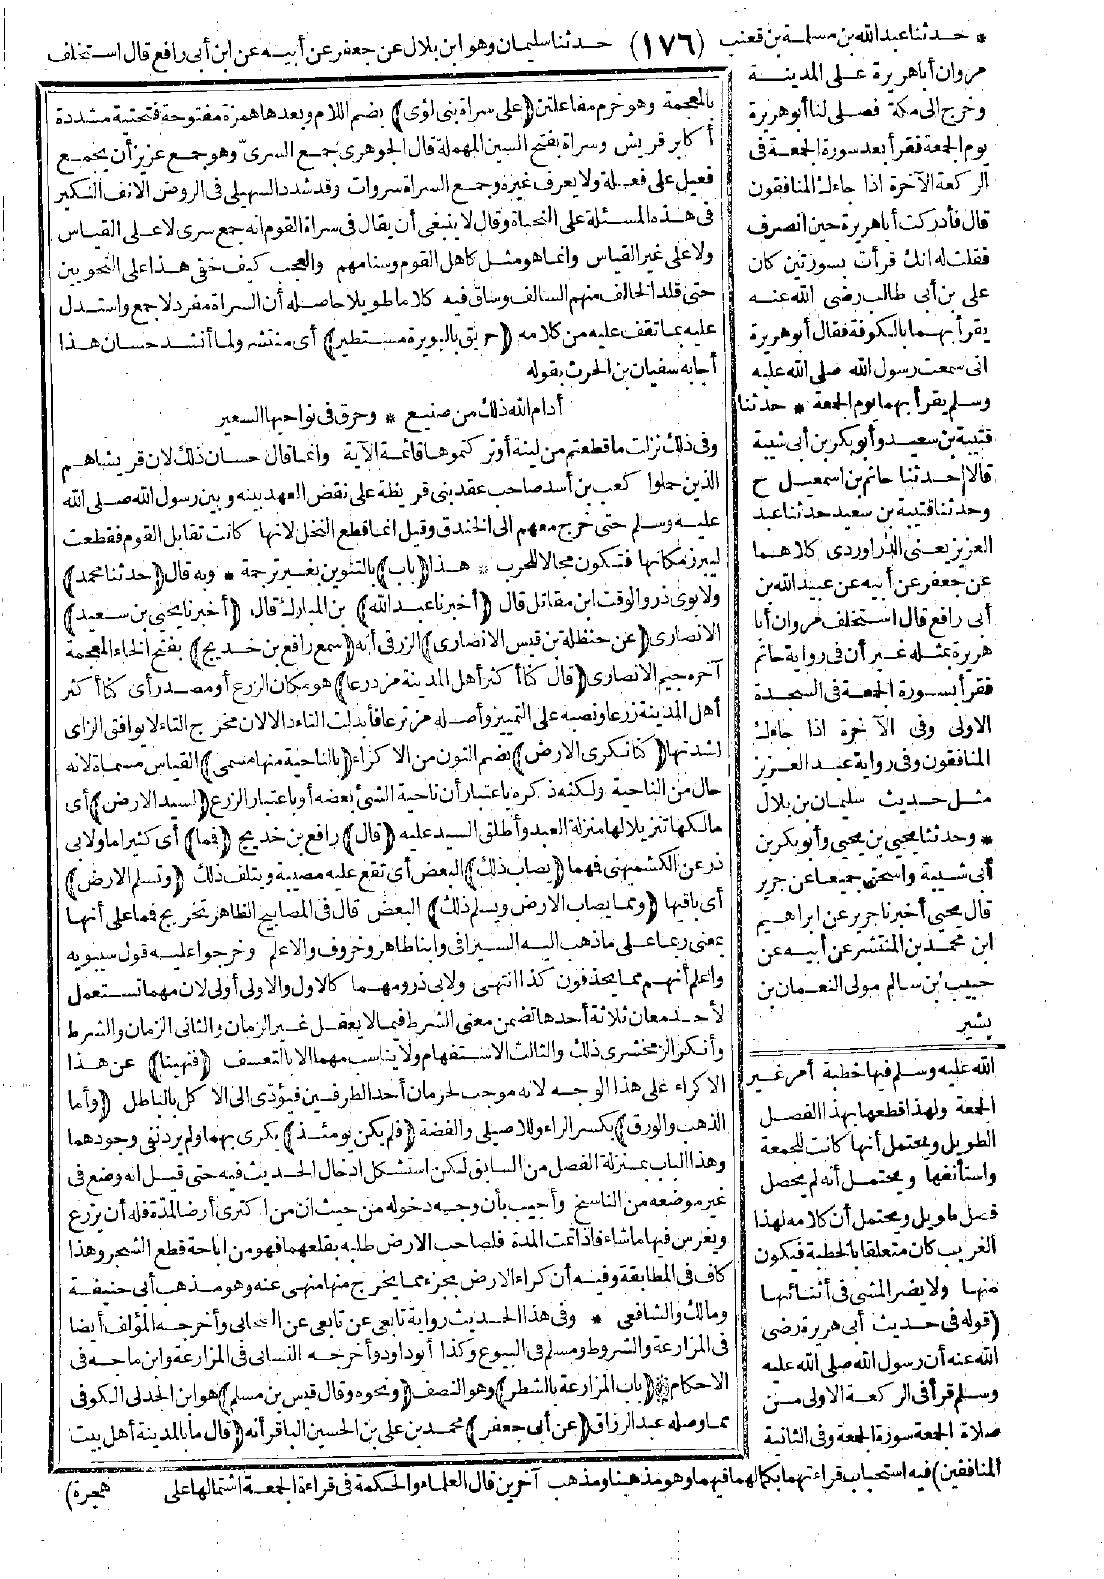 * حدثنا عبد الله بن مسلمة بن قعنب (١٧٦) حدثنا سليمان وهو ابن بلال عن جعفر عن أبيه عن ابن أبي رافع قال استخلف
مروان أبا هريرة على المدينة
وخرج الى مكة فصلى لنا أبو هريرة
يوم الجمعة فقرأ بعد سورة الجمعة فى
الركعة الآخرة اذا جاءك المنافقون
قال فأدركت أبا هريرة حين انصرف
فقلت له انك قرأت بسورتين كان
على بن أبى طالب رضى الله عنه
يقرأ بهما بالكوفة فقال أبو هريرة
انى سمعت رسول الله صلى الله عليه
وسلم يقرأ بهما يوم الجمعة * حدثنا
قتيبة بن سعيد وأبو بكر بن أبى شيبة
قالا حدثنا حاتم بن اسمعيل ح
وحدثنا قتيبة بن سعيد حدثنا عبد
العزيز يعنى الدراوردى كلاهما
عن جعفر عن أبيه عن عبيد الله بن
أبى رافع قال استخلف مروان أبا
هريرة بمثله غير أن فى رواية حاتم
فقرأ بسورة الجمعة فى السجدة
الاولى وفى الآخرة اذا جاءك
المنافقون وفى رواية عبد العزيز
مثل حديث سليمان بن بلال
* وحدثنا يحيى بن يحيى وأبو بكر بن
أبى شيبة واسحق جميعا عن جرير
قال يحيى أخبرنا جرير عن ابراهيم
ابن محمد بن المنتشر عن أبيه عن
حبيب بن سالم مولى النعمان بن
بشير
الله عليه وسلم فيها خطبة أمر غير
الجمعة ولهذا قطعها بهذا الفصل
الطويل ويحتمل أنها كانت للجمعة
واستأنفها ويحتمل أنه لم يحصل
فصل طويل ويحتمل أن كلامه لهذا
الغريب كان متعلقا بالخطبة فيكون
منها ولا يضر المشى فى أثنائها
(قوله فى حديث أبى هريرة رضى
الله عنه أن رسول الله صلى الله عليه
وسلم قرأ فى الركعة الاولى من
صلاة الجمعة سورة الجمعة وفى الثانية
المنافقين) فيه استحباب قراءتهما بكمالهما فيهما وهو مذهبنا ومذهب آخرين قال العلماء والحكمة فى قراءة الجمعة اشتمالها على
بالمعجمة وهو خرم مفاعلتن (على سراة بنى لؤى) بضم اللام وبعدها همزة مفتوحة فتحتية مشددة
أكابر قريش وسراة بفتح السين المهملة قال الجوهرى جمع السرىّ وهو جمع عزيز أن يجمع
فعيل على فعلة ولا يعرف غيره وجمع السراة سروات وقد شدد السهيلى فى الروض الانف النكير
فى هذه المسئلة على النحاة وقال لا ينبغى أن يقال فى سراة القوم انه جمع سرى لا على القياس
ولا على غير القياس وانما هو مثل كاهل القوم وسنامهم والعجب كيف خفى هذا على النحويين
حتى قلد الخالف منهم السالف وساق فيه كلاما طويلا حاصله أن السراة مفرد لا جمع واستدل
عليه بما تقف عليه من كلامه (حريق بالبويرة مستطير) أى منتشر ولما أنشد حسان هذا
أجابه سفيان بن الحرث بقوله
أدام الله ذلك من صنيع * وحرق فى نواحيها السعير
وفى ذلك نزلت ما قطعتم من لينة أو تركتموها قائمة الآية وانما قال حسان ذلك لان قريشا هم
الذين حملوا كعب بن أسد صاحب عقد بنى قريظة على نقض العهد بينه وبين رسول الله صلى الله
عليه وسلم حتى خرج معهم الى الخندق وقيل انما قطع النخل لانها كانت تقابل القوم فقطعت
ليبرز مكانها فتكون مجالا للحرب * هذا (باب) بالتنوين بغير ترجمة * وبه قال (حدثنا محمد)
ولابوى ذر والوقت ابن مقاتل قال (أخبرنا عبد الله) بن المبارك قال (أخبرنا يحيى بن سعيد)
الانصارى (عن حنظلة بن قيس الانصارى) الزرقى أنه (سمع رافع بن خديج) بفتح الخاء المعجمة
آخره جيم الانصارى (قال كنا أكثر أهل المدينة مزدرعا) هو مكان الزرع أو مصدر أى كنا أكثر
أهل المدينة زرعا ونصبه على التمييز وأصله مزترعا فأبدلت التاء دالا لان مخرج التاء لا يوافق الزاى
لشدتها (كنا نكرى الارض) بضم النون من الاكراء (بالناحية منها مسمى) القياس مسماة لانه
حال من الناحية ولكنه ذكره باعتبار أن ناحية الشئ بعضه أو باعتبار الزرع (لسيد الارض) أى
مالكها تنزيلا لها منزلة العبد وأطلق السيد عليه (قال) رافع بن خديج (فما) أى كثيرا ما ولابى
ذر عن الكشميهنى فهما (يصاب ذلك) البعض أى تقع عليه مصيبة ويتلف ذلك (وتسلم الارض)
أى باقيها (ومما يصاب الارض ويسلم ذلك) البعض قال فى المصابيح الظاهر تخريج فما على أنها
بمعنى ربما على ما ذهب اليه السيرافى وابنا طاهر وخروف والاعلم وخرجوا عليه قول سيبويه
واعلم أنهم مما يحذفون كذا انتهى ولابى ذر ومهما كالاول والاولى أولى لان مهما تستعمل
لأحد معان ثلاثة أحدها تضمن معنى الشرط فيما لا يعقل غير الزمان والثانى الزمان والشرط
وأنكر الزمخشرى ذلك والثالث الاستفهام ولا يناسب مهما الا بالتعسف (فنهينا) عن هذا
الاكراء على هذا الوجه لانه موجب لحرمان أحد الطرفين فيؤدّى الى الاكل بالباطل (وأما
الذهب والورق) بكسر الراء وللاصيلى والفضة (فلم يكن يومئذ) يكرى بهما ولم يرد نفى وجودهما
وهذا الباب بمنزلة الفصل من السابق لكن استشكل ادخال الحديث فيه حتى قيل انه وضع فى
غير موضعه من الناسخ وأجيب بأن وجه دخوله من حيث ان من اكترى أرضا لمدة فله أن يزرع
ويغرس فيها ما شاء فاذا تمت المدة فلصاحب الارض طلبه بقلعهما فهو من اباحة قطع الشجر وهذا
كاف فى المطابقة وفيه أن كراء الارض بجزء مما يخرج منها منهى عنه وهو مذهب أبى حنيفة
ومالك والشافعى * وفى هذا الحديث رواية تابعى عن تابعى عن الصحابى وأخرجه المؤلف أيضا
فى المزارعة والشروط ومسلم فى البيوع وكذا أبو داود وأخرجه النسائى فى المزارعة وابن ماجه فى
الاحكام (باب المزارعة بالشطر) وهو النصف (ونحوه وقال قيس بن مسلم) هو ابن الجدلى الكوفى
مما وصله عبد الرزاق (عن أبى جعفر) محمد بن على بن الحسين الباقر أنه (قال ما بالمدينة أهل بيت
هجرة)